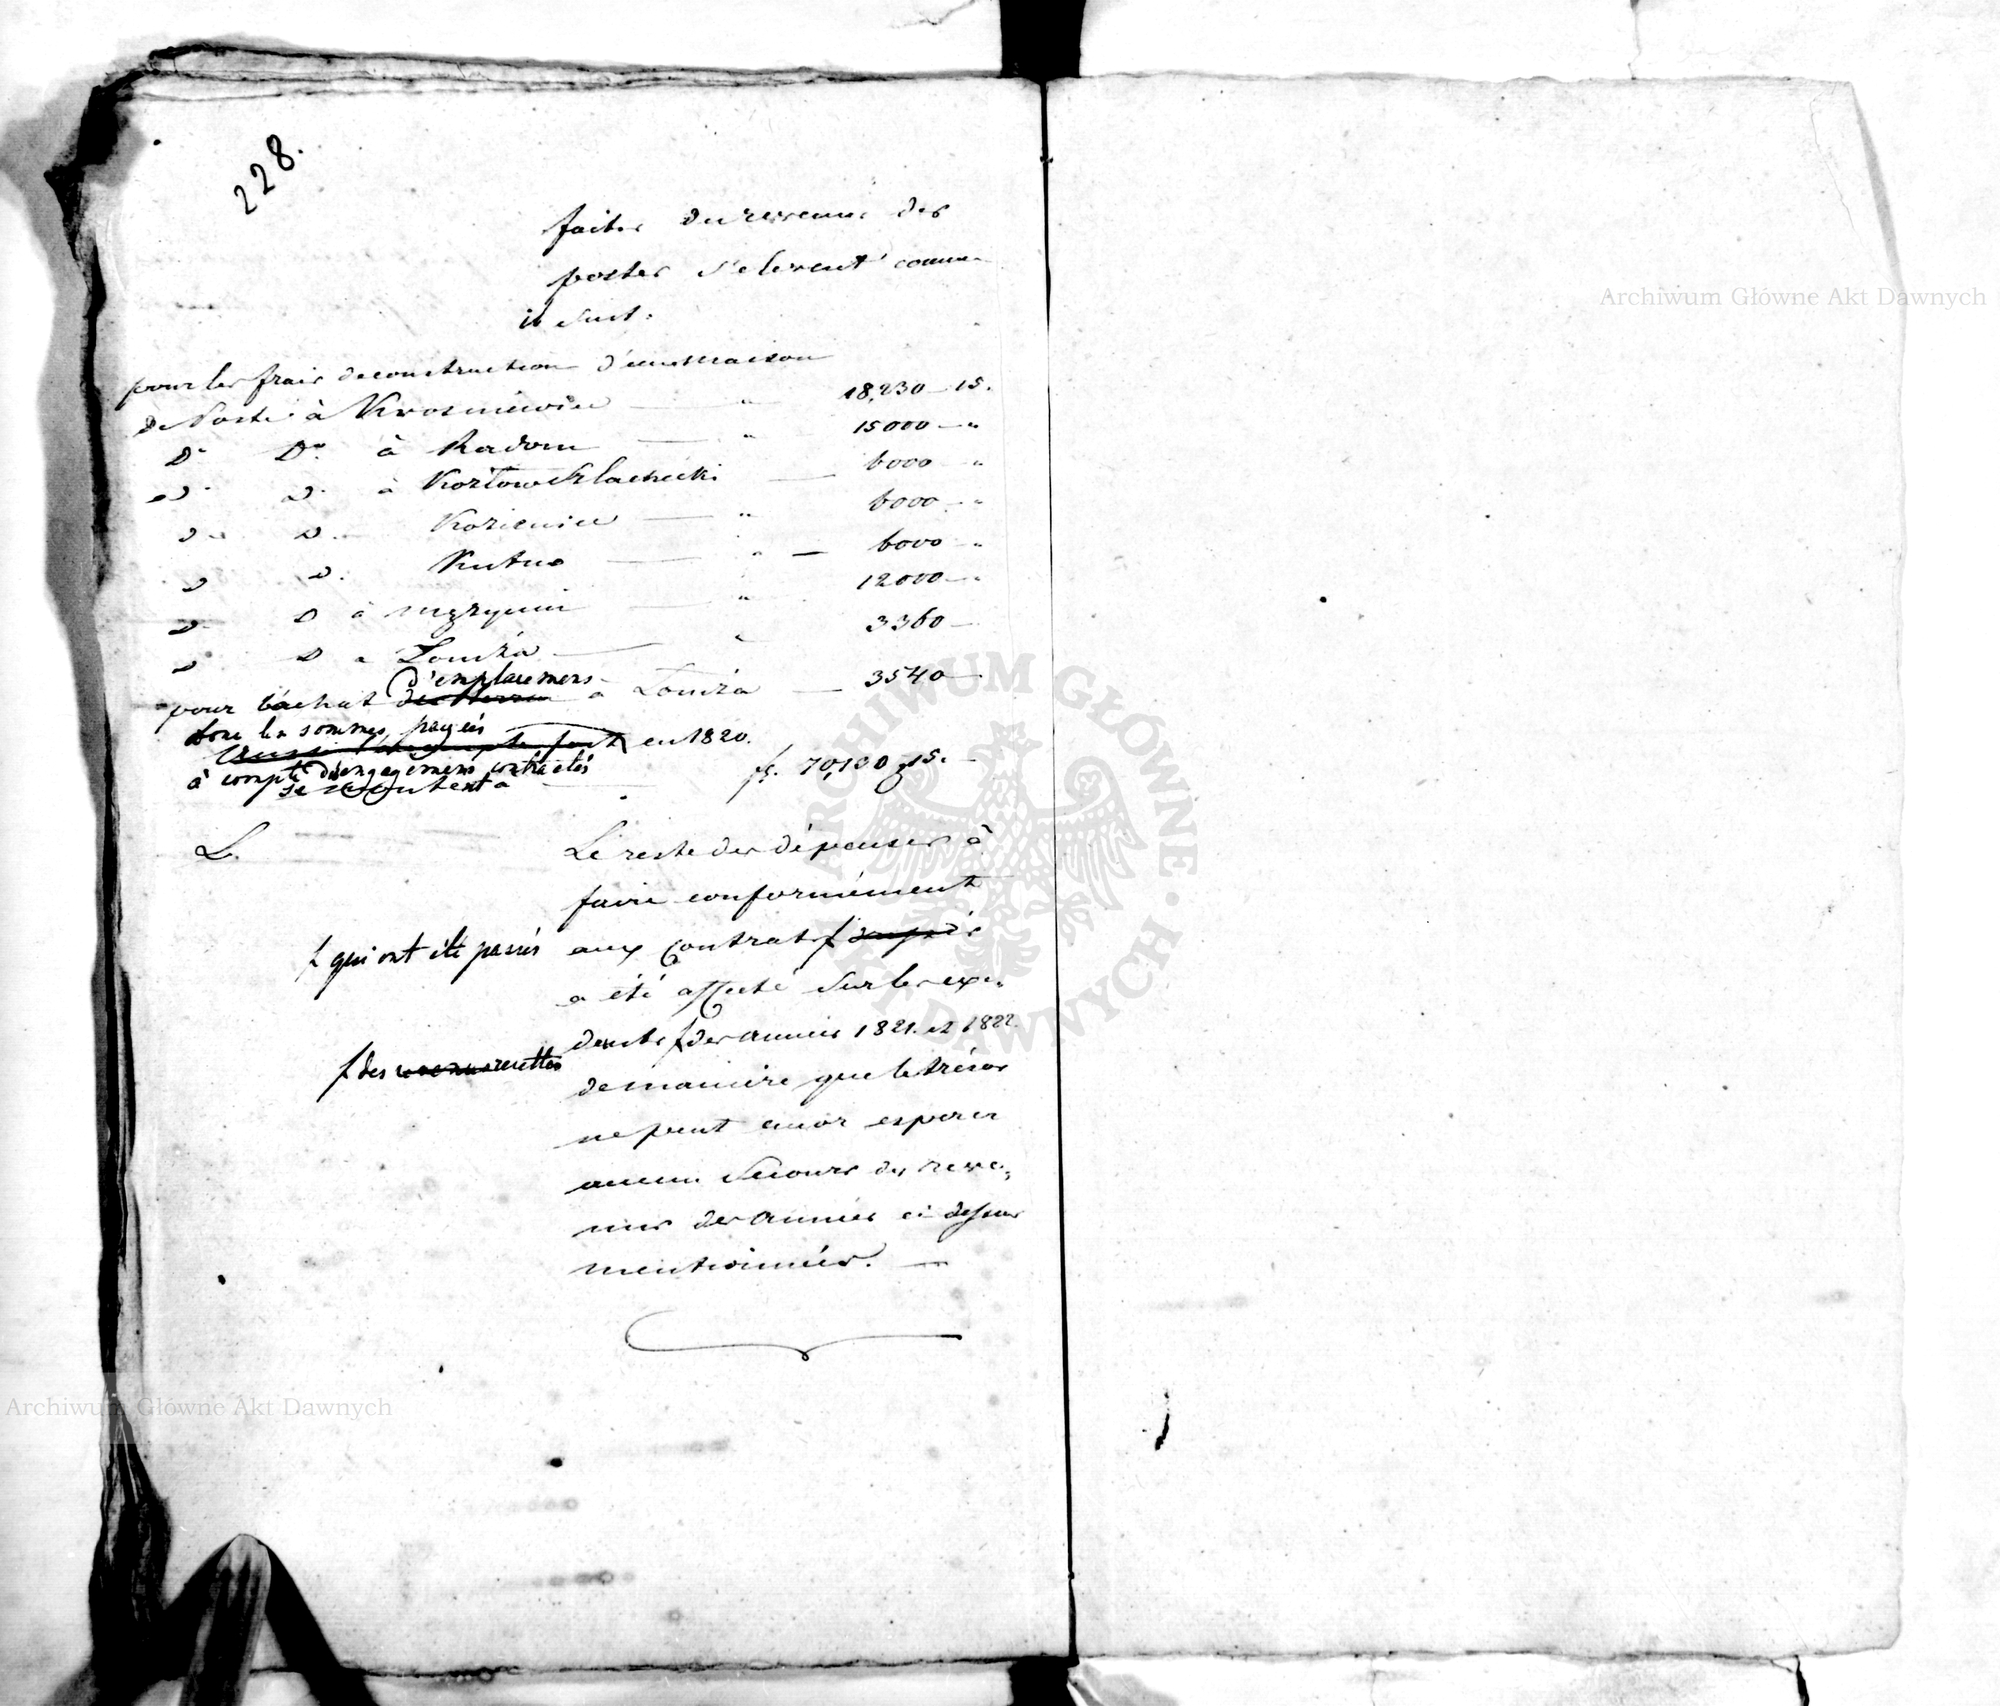 228.
faites du revenu des
postes s'elevent comme
il suit.
pour les frais de construction d'une maison
de Poste à Krosniewice — " — 18,230 — 15.
Do Do à Radom — " — 15000 — "
Do Do à Kozłow Szlachecki — 6000 — "
Do Do Kozienice — " — 6000 — "
D D. Kutno — " — 6000 — "
D D à Mszczonow — " — 12000 — "
D D a Lomża — " — 3360 —
d'emplacemens
pour l'achat du terrein a Lomża — 3540 —
donc les sommes payées
en 1820.
à compte d'engagemens contractés
se montent a — fl. 70,130 g 15. —
L. Le reste des dépenses à
faire conformément
ƒ qui ont été passés aux contrats ƒ
a été affecté sur les exce-
ƒ des revenus recettes dents ƒ des années 1821. et 1822.
de maniere que le trésor
ne peut avoir esperer
aucun secours des reve-
nus des années ci dessus
mentionnées. —
Archiwum Główne Akt Dawnych
Archiwum Główne Akt Dawnych
ARCHIWUM GŁÓWNE · AKT DAWNYCH ·